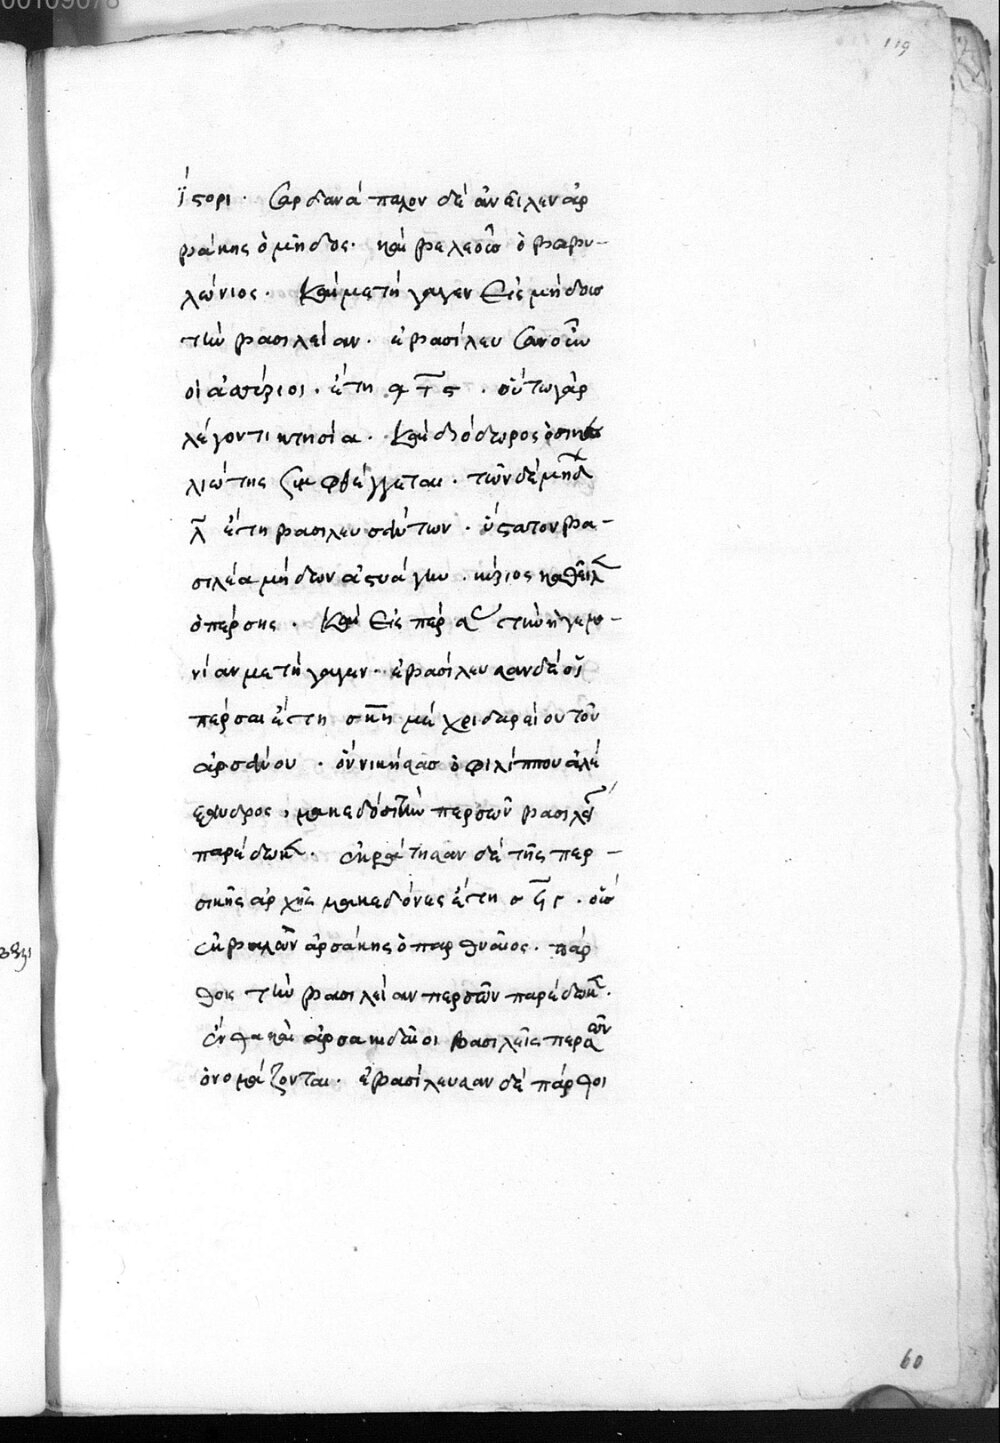 119
ἱστορι. Σαρδανάπαλον δὲ ἀνεῖλεν ἀρ
βάκης ὁ μῆδος. καὶ βελεσις ὁ βαβυ-
λώνιος. Καὶ μετήγαγεν εἰς μήδους
τὴν βασιλείαν. ἐβασίλευσαν οὖν
οἱ ἀσσύριοι. ἔτη ͵ατϛ. οὕτω γὰρ
λέγοντι κτησία. Καὶ διόδωρος ὁ σικε
λιώτης συμφθέγγεται. τῶν δὲ μηδ
ἔτη βασιλευσάντων. ὕστατον βα-
σιλέα μήδων ἀστυάγην. κύριος καθεῖλ
ὁ πέρσης. Καὶ εἰς πέρσας τὴν ἡγεμο-
νίαν μετήγαγεν. ἐβασίλευσαν δὲ οἱ
πέρσαι ἔτη σκη μέχρι δαρείου τοῦ
ἀρσάνου. ὃν νικήσας ὁ φιλίππου ἀλέ
ξανδρος, μακεδόσι τὴν περσῶν βασιλεί
παρέδωκ. ἐκράτησαν δὲ τῆς περ-
σικῆς ἀρχῆς μακεδόνες ἔτη. οὓς
ἐκβαλὼν ἀρσάκης ὁ παρθυαῖος. πάρ
θοις τὴν βασιλείαν περσῶν παρέδωκ.
ἔνθα καὶ ἀρσακιδαι οἱ βασιλεῖς περσῶν
ὀνομάζονται. ἐβασίλευσαν δὲ πάρθοι
60